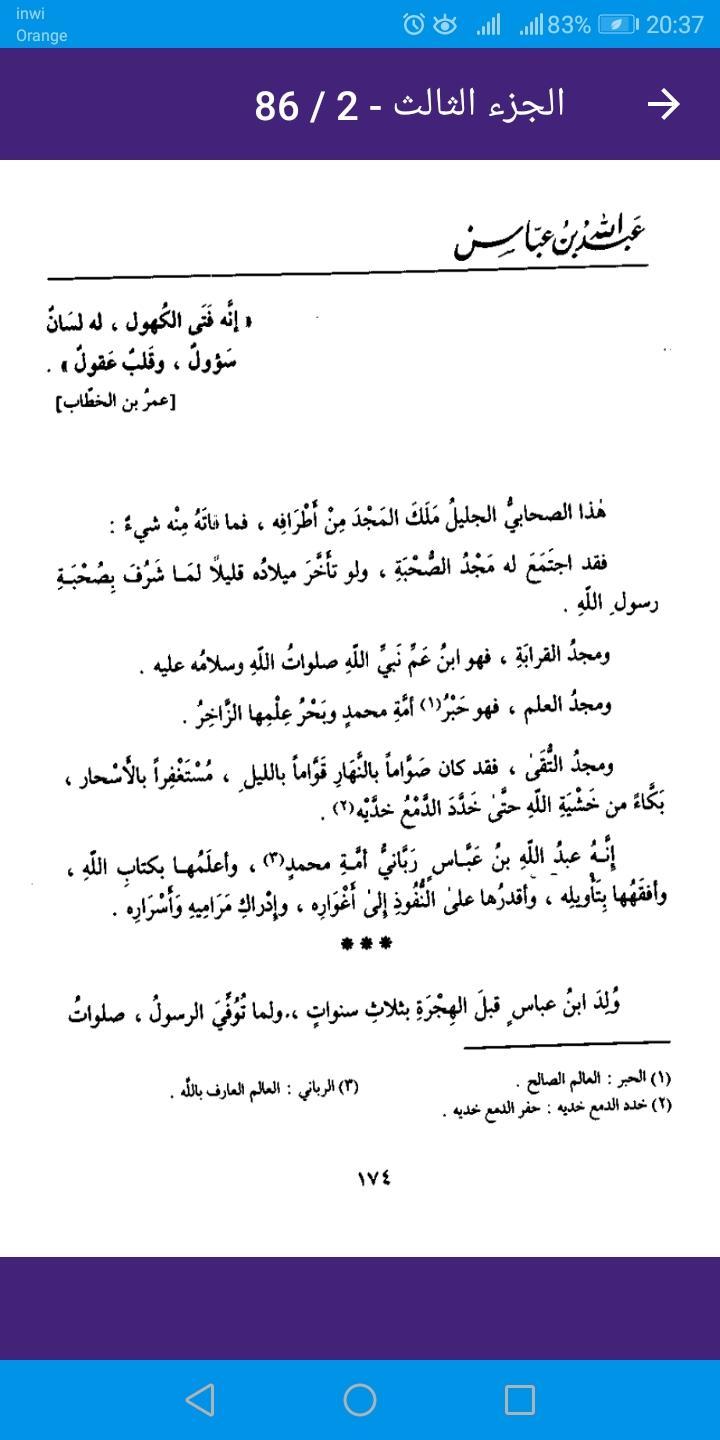 inwi
Orange
83% 20:37
الجزء الثالث - 2 / 86
عَبدُ اللهِ بْنُ عَبّاسٍ
« إنَّه فَتَى الكُهول ، له لسَانٌ
سَؤولٌ ، وقَلبٌ عَقولٌ » .
[عمرُ بن الخطّاب]
هٰذا الصحابيُّ الجليلُ مَلَكَ المَجْدَ مِنْ أَطْرَافِه ، فما فاتَهُ مِنْه شيءٌ :
فقد اجتَمَعَ له مَجْدُ الصُّحْبَةِ ، ولو تأَخَّرَ ميلادُه قليلًا لمَـا شَرُفَ بِصُحْبَـةِ
رسولِ اللّهِ .
ومجدُ القرابَةِ ، فهو ابنُ عَمِّ نَبيِّ اللّهِ صلواتُ اللّهِ وسلامُه عليه .
ومجدُ العلم ، فهو حَبْرُ(١) أمَّةِ محمدٍ وبَحْرُ عِلْمِها الزَّاخِرُ .
ومجدُ التُّقَىٰ ، فقد كان صَوَّاماً بالنَّهَارِ قَوَّاماً بالليلِ ، مُسْتَغْفِراً بالأَسْحار ،
بَكَّاءً من خَشْيَةِ اللّهِ حتَّىٰ خَدَّدَ الدَّمْعُ خدَّيْه(٢) .
إنَّـهُ عبدُ اللّهِ بنُ عَبَّـاسٍ رَبَّانيُّ أمَّـةِ محمدٍ(٣) ، وأعلَمُهـا بكتابِ اللّهِ ،
وأفقَهُها بِتَأْويلِه ، وأقدرُها علىٰ النُّفُوذِ إلىٰ أَغْوَارِه ، وإدْراكِ مَرَامِيهِ وَأَسْرَارِه .
***
وُلِدَ ابنُ عباسٍ قبلَ الهِجْرَةِ بثلاثِ سنواتٍ ،.ولما تُوُفِّيَ الرسولُ ، صلواتُ
(١) الحبر : العالم الصالح .
(٢) خدد الدمع خديه : حفر الدمع خديه .
(٣) الرباني : العالم العارف باللّه .
١٧٤